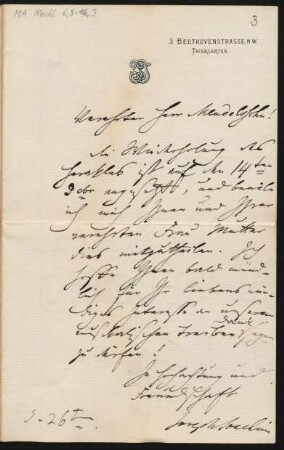 MA Nachl. 6,3-16,3
3
3. BEETHOVENSTRASSE. N.W.
THIERGARTEN.
Verehrter Herr Mendelssohn!
die Wiederholung des
Herakles ist auf den 14ten
angesetzt, und beeile
ich mich Ihnen und Ihrer
verehrten Frau Mutter
dies mitzutheilen. Ich
hoffe Ihnen bald münd-
lich für Ihr liebenswür-
diges Interesse an unserem
musikalischen Treiben
Dank
sagen
zu dürfen!
In Hochachtung und
Freundschaft
Joseph Joachim
d. 26ten